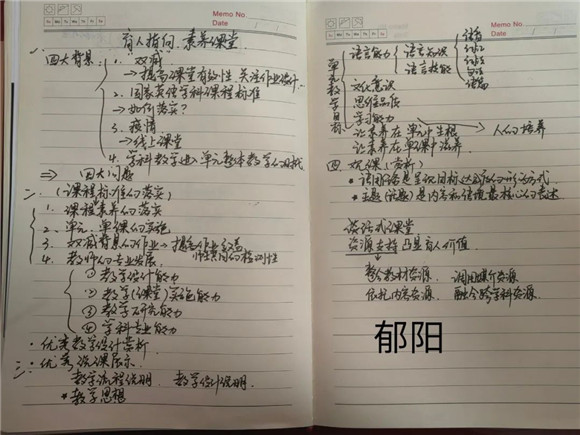 Memo No.
Date
Mo Tu We Th Fr Sa Su
育人指向 素养课堂
一、四大背景
1. 双减
→提高课堂有效性 关注作业设计
2. 国家英语学科课程标准
→如何落实?
3. 疫情
→线上课堂
4. 学科教学进入单元整体教学的
⇒ 四大问题
二、(课程标准的落实)
1. 课程素养的落实
2. 单元、单课的实施
3. 双减背景的作业→提高作业效益
4. 教师的专业发展
① 教学设计能力
② 教学(课堂)实施能力
③ 教学研究能力
④ 学科专业能力
·优秀教学设计赏析
三、优秀说课展示
教学流程说明、教学设计说明
*教学思想
Memo No.
Date
Mo Tu We Th Fr Sa Su
单元教学目标
语言能力
语言知识
语言技能
语音
词汇
词法
句法
语篇
文化意识
思维品质
学习能力
让素养在单元中生根 → 人的培养
让素养在单课中培养
四、观课(赏析)
*话题
谈话式课堂
资源支持凸显育人价值
整合教材资源 调用媒介资源
依托内容资源 融合跨学科资源
郁阳